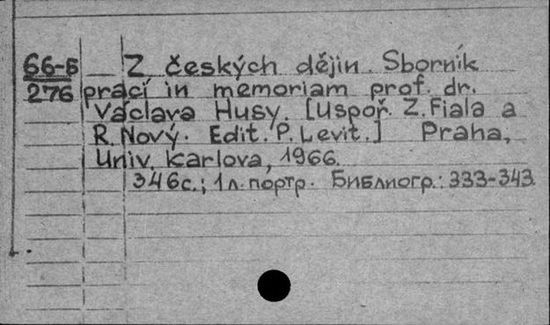 66-Б Z českých dějin. Sborník
276 prací in memoriam prof. dr.
Václava Husy. [Uspoř. Z. Fiala a
R. Nový. Edit. P. Levit.] Praha,
Univ. Karlova, 1966.
346с.; 1л. портр. Библиогр.: 333-343.